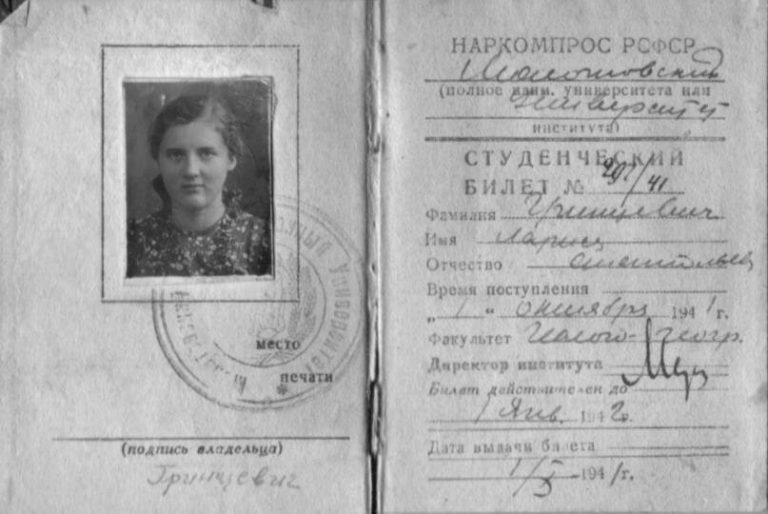 место
печати
(подпись владельца)
Гринцевич
НАРКОМПРОС РСФСР
Молотовский
(полное наим. университета или
Университет
института)
СТУДЕНЧЕСКИЙ
БИЛЕТ № /41
Фамилия Гринцевич
Имя Лариса
Отчество
Время поступления
„ 1 “ октября 1941 г.
Факультет Геолого-геогр.
Директор института
Билет действителен до
1 Янв. 1942.
Дата выдачи билета
1/X 1941 г.